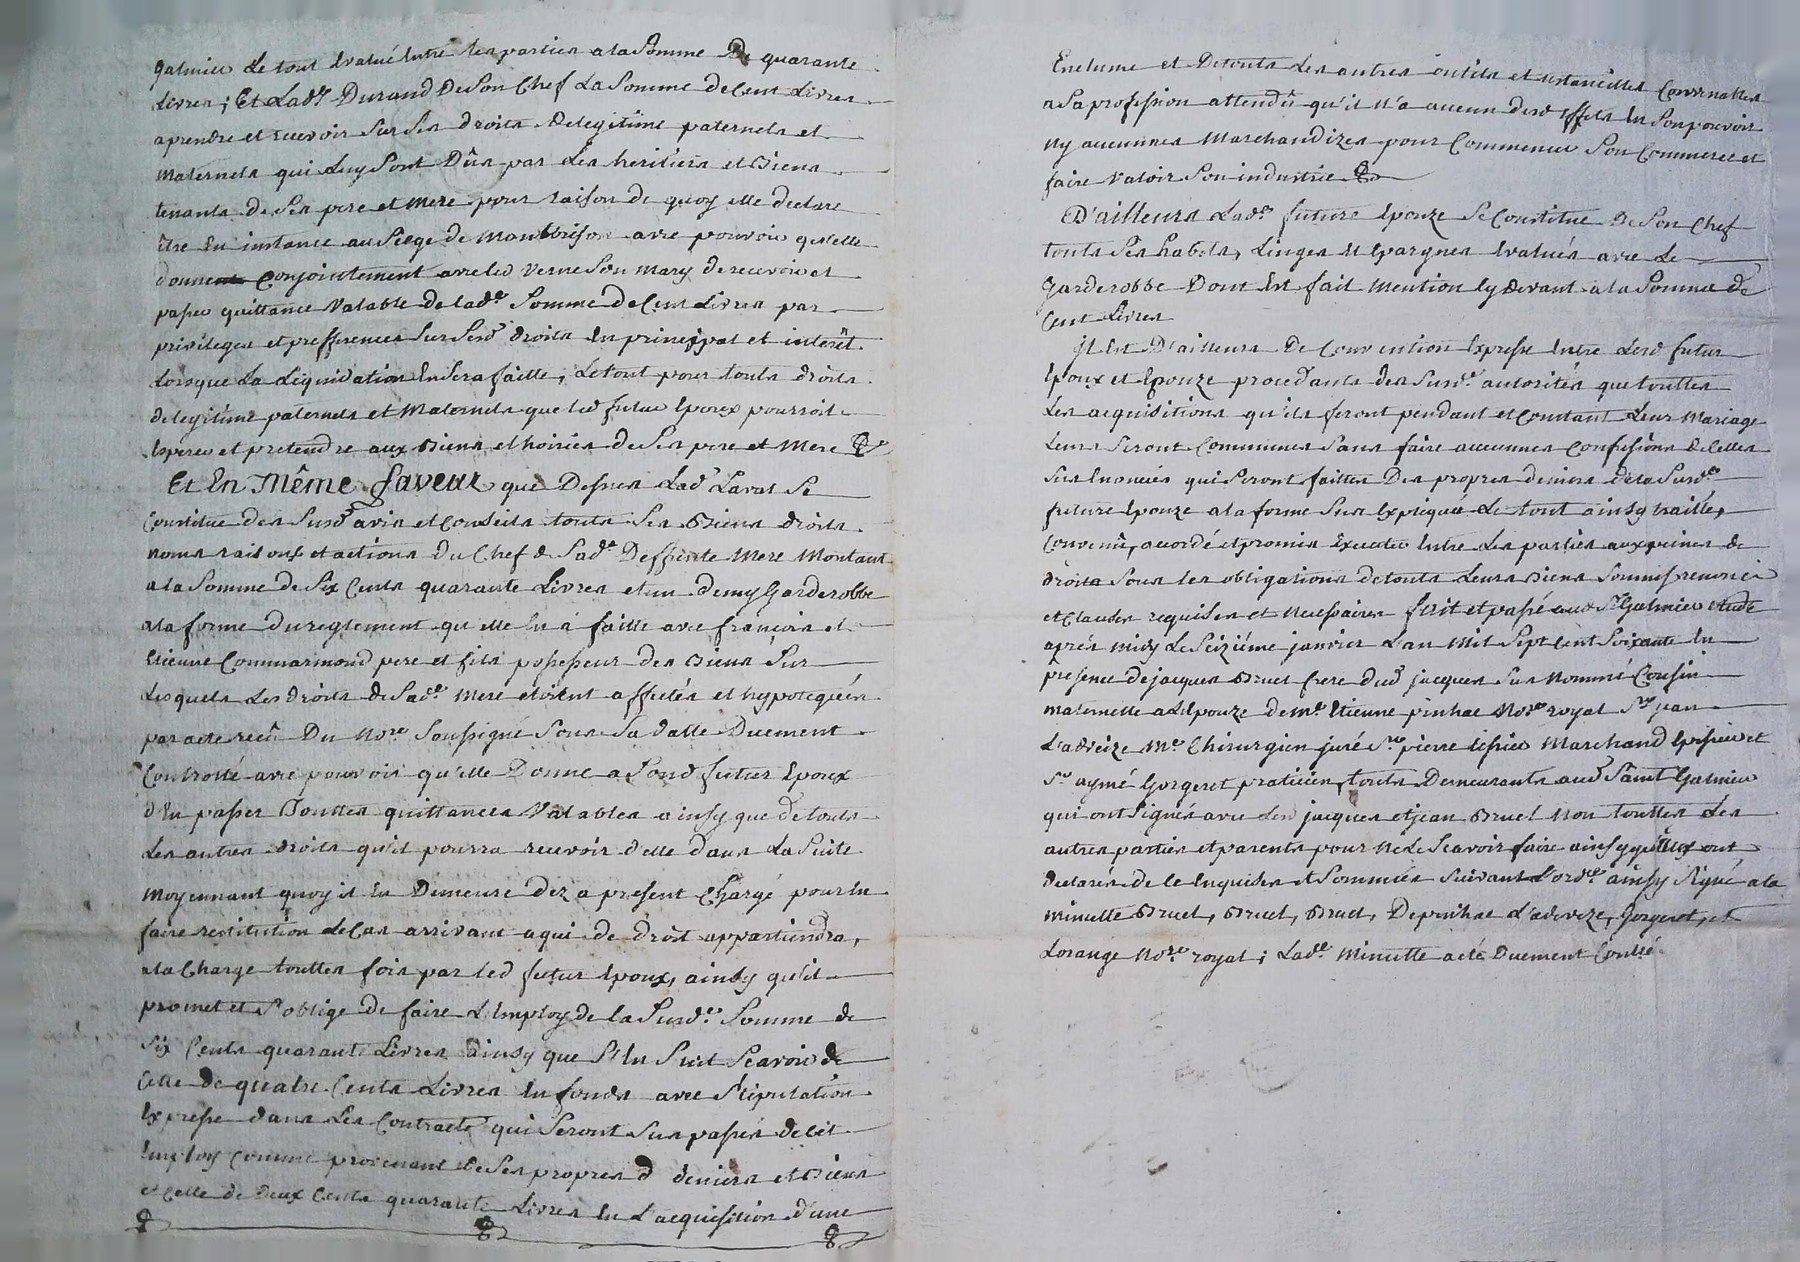 galmier Le tout Evalué Entre les parties a la Somme De quarante
Livres; Et Lad.e Durand De Son Chef La Somme de Cent Livres
aprendre et recevoir Sur Ses droits De legitime paternels et
Maternels qui Luy Sont Dûs par Les heritiers et Biens
tenants de Ses pere et Mere pour raison de quoy elle declare
Etre En instance au Siege de Montbrison avec pouvoir qu'elle
donne Conjointement avec led Verne Son Mary de recevoir et
passer quittance Valable de lad.e Somme de Cent Livres par
privileges et prefferences Sur Sesd droits En principal et interêt
Lorsque La Liquidation En Sera faitte, Le tout pour touts droits
de legitime paternels et Maternels que led futur Epoux pourroit
Esperer et pretendre aux Biens et hoiries de Ses pere et Mere
Et En Même faveur que Dessus Lad Laval Se
Constitue des Susd avis et Conseils touts Ses Biens droits
noms raisons et actions Du Chef de Sad.e Deffunte Mere Montant
a la Somme de Six Cents quarante Livres et un demy Garderobbe
a la forme du reglement qu'elle En a faitte avec françois et
Etienne Commarmond pere et fils possesseur des Biens Sur
Lesquels Les droits de Sad.e Mere etoient affectés et hypotequés
par acte reçû Du No.re Soussigné Sous Sa datte Duement
Controllé avec pouvoir qu'elle Donne a Sond futur Epoux
d'En passer Touttes quittances Valables ainsy que de touts
Les autres droits qu'il pourra recevoir d'elle dans La Suite
Moyennant quoy il En Demeure dez a present Chargé pour En
faire restitution Le Cas arrivant a qui de droit appartiendra,
a la Charge touttes fois par led futur Epoux, ainsy qu'il
promet et S'oblige de faire L'Employ de la Susd.e Somme de
Six Cents quarante Livres ainsy que S'En Suit Scavoir de
Celle de quatre Cents Livres En fonds avec Stipulation
Expresse dans Les Contracts qui Seront Sus passés de Cet
Employ Comme provenant de Ses propres d deniers et Biens
et Celle de Deux Cents quarante Livres En L'acquisition d'une
Enclume et De touts Les autres outils et ustancilles Convenables
a Sa profession attendû qu'il N'a aucun desd effets En Son pouvoir
Ny aucunnes Marchandizes pour Commencer Son Commerce et
faire Valoir Son industrie
D'ailleurs Lad.e future Epouze Se Constitue De Son Chef
touts Ses habits, Linges et Epargnes Evalués avec Le
Garderobbe Dont Est fait Mention Cy Devant a la Somme de
Cent Livres
Il Est D'ailleurs De Convention Expresse Entre Lesd futur
Epoux et Epouze procedants des Susd.es autorités que touttes
Les acquisitions qu'ils feront pendant et Constant Leur Mariage
Leurs Seront Communes Sans faire aucunnes Confusions de Celles
Sus Enoncées qui Seront faittes Des propres deniers de la Susd.e
future Epouze a la forme Sus Expliquée Le tout ainsy traitté,
Convenû, acordé et promis Executer Entre Les parties aux peines de
droits Sous Les obligations de touts Leurs Biens Soumis renoncé
et Clauses requises et Necessaires fait et passé aud S.t Galmier etude
aprés midy Le Seiziéme janvier L'an Mil Sept Cent Soixante En
presence de jacques Bruel frere dud jacques Sus Nommé Cousin
maternelle a L'Epouze de M.e Etienne pinhac No.re royal S.r jean
L'adveize M.e Chirurgien juré S.r pierre Marchand Epicier et
S.r aymé Gorgeret praticien, touts Demeurants aud Saint Galmier
qui ont Signés avec Les jacques et jean Bruel Non touttes Les
autres parties et parents pour Ne Le Scavoir faire ainsy qu'Eux ont
declarés de Ce Enquises et Sommées Suivant L'ord.ce ainsy Signé a la
Minutte Bruel, Bruel, Bruel, Depinhac L'adveze, Gorgeret, et
Lorange No.re royal; Lad.e Minutte a eté Duement Conllé